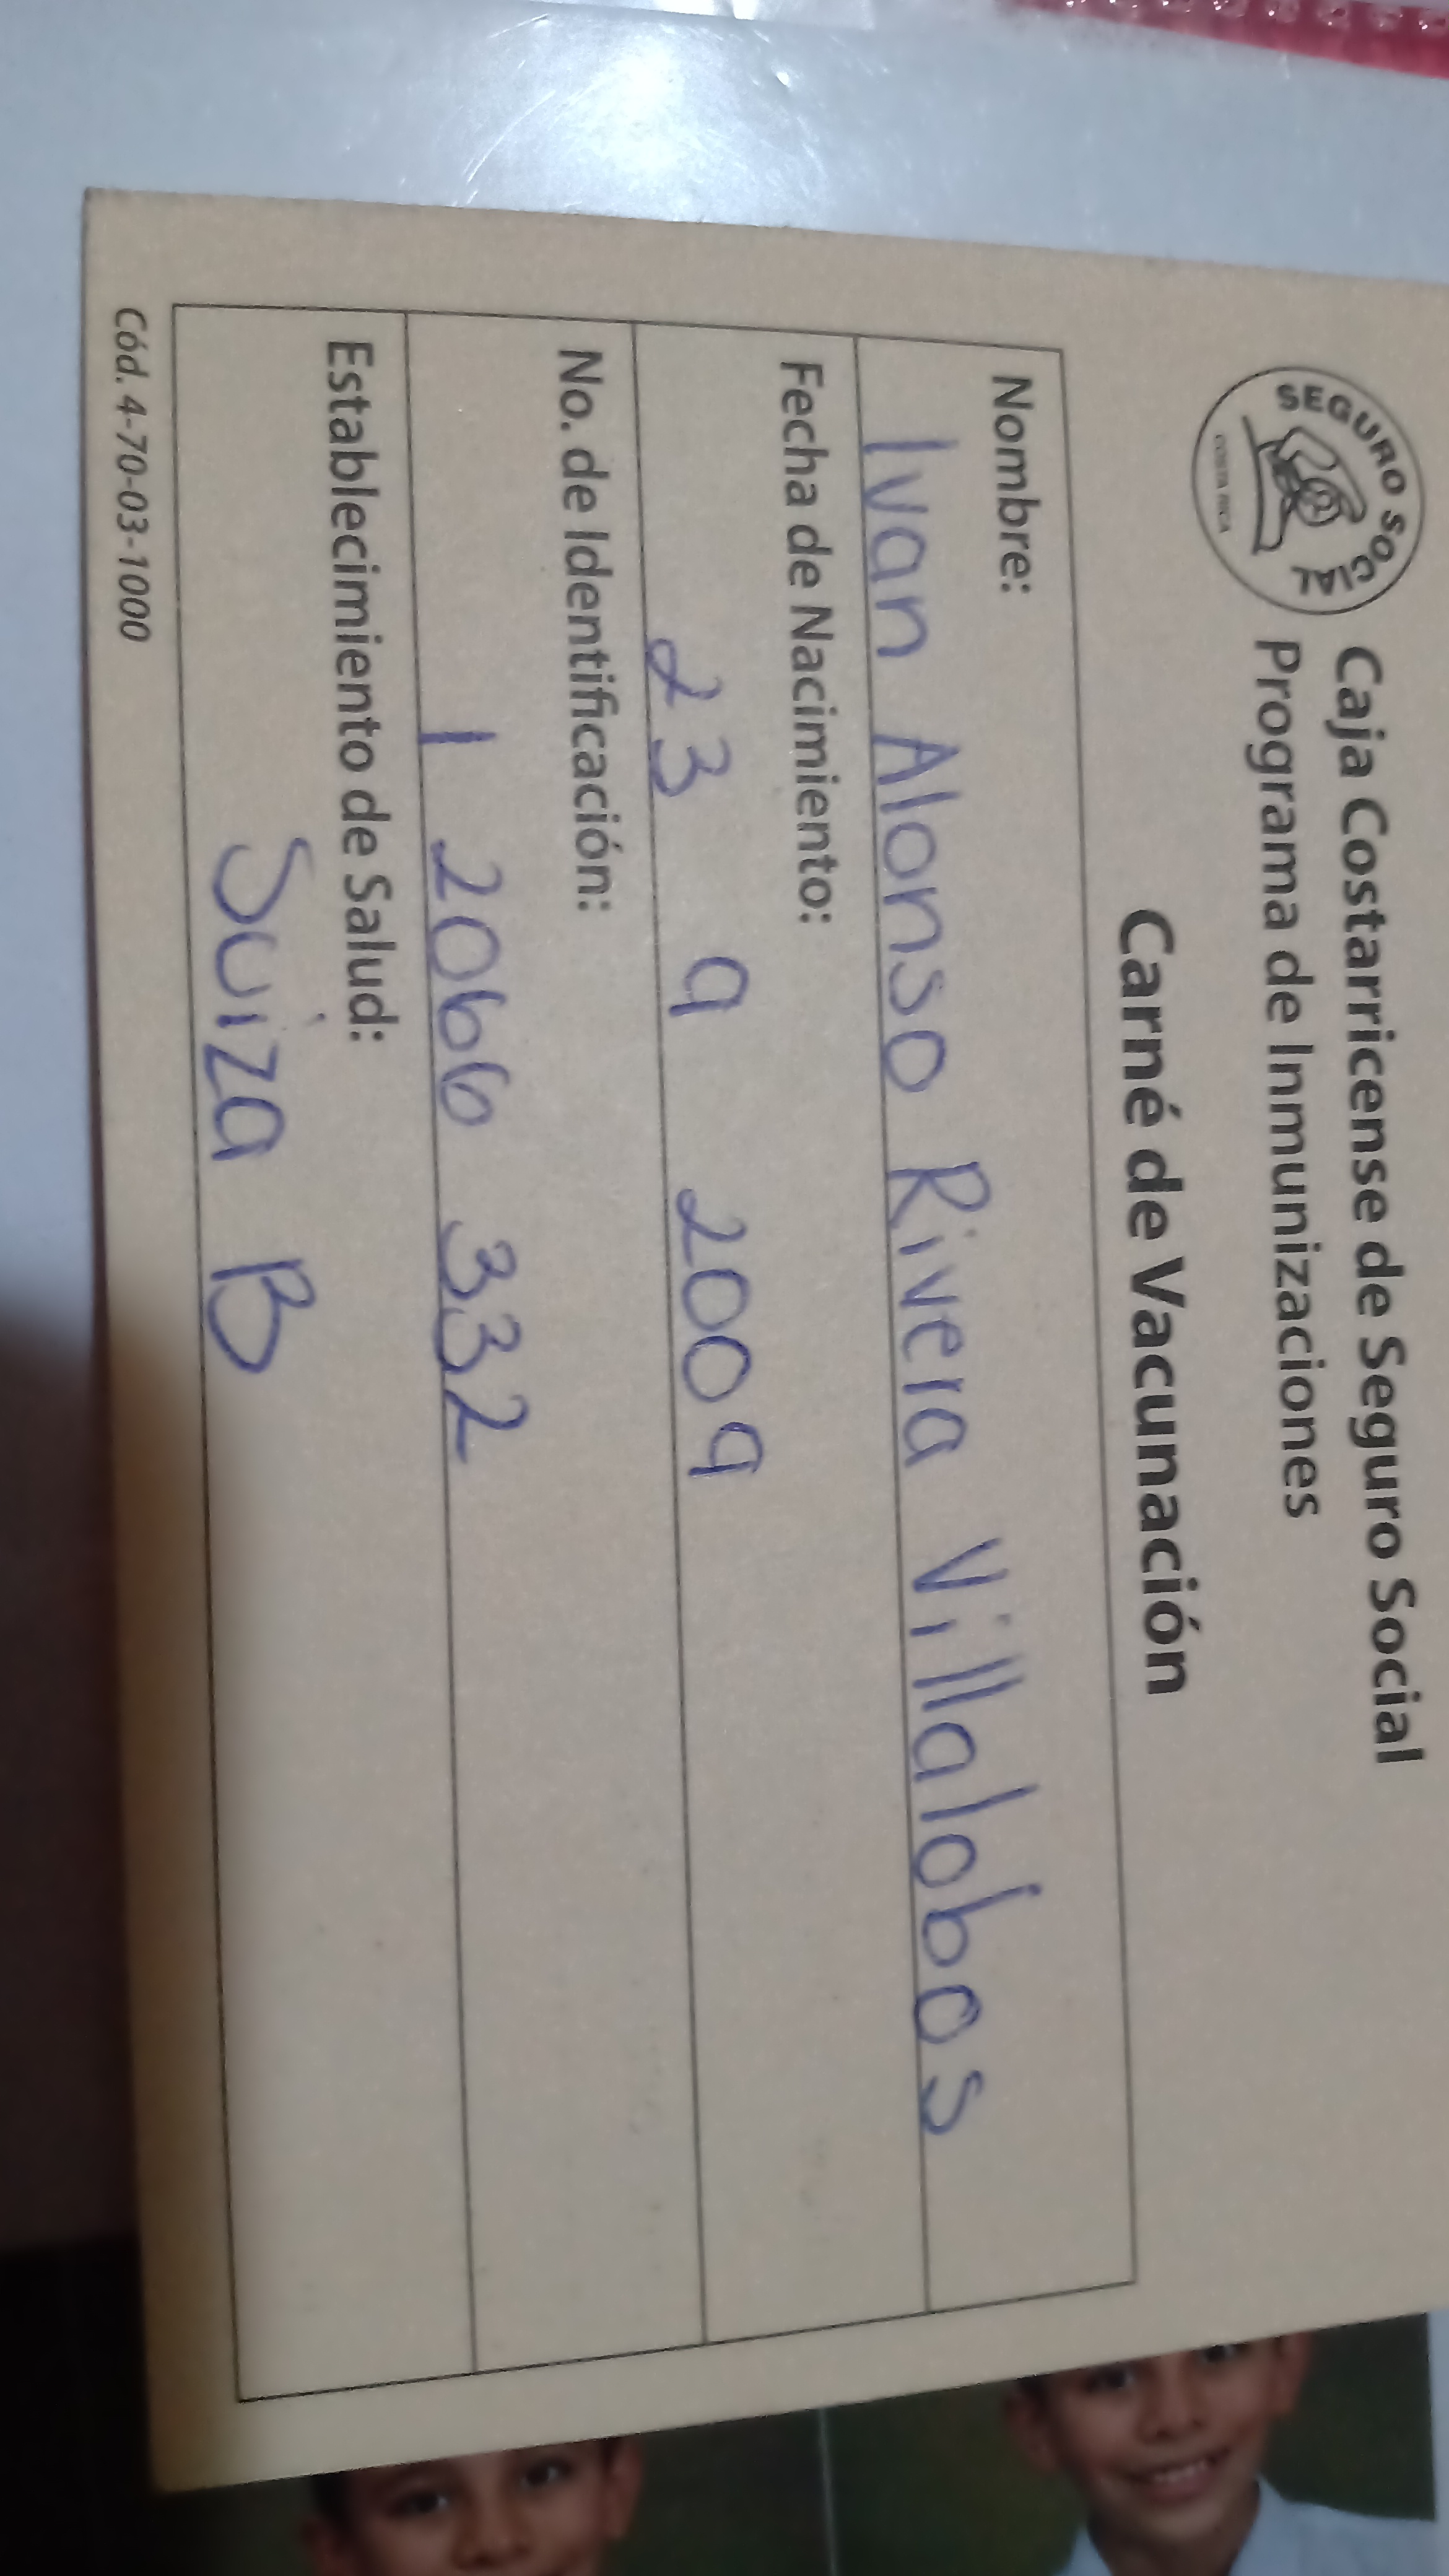 SEGURO SOCIAL
COSTA RICA
Caja Costarricense de Seguro Social
Programa de Inmunizaciones
Carné de Vacunación
Nombre:
Ivan Alonso Rivera Villalobos
Fecha de Nacimiento:
23 9 2009
No. de Identificación:
1 2066 332
Establecimiento de Salud:
Suiza B
Cód. 4-70-03-1000